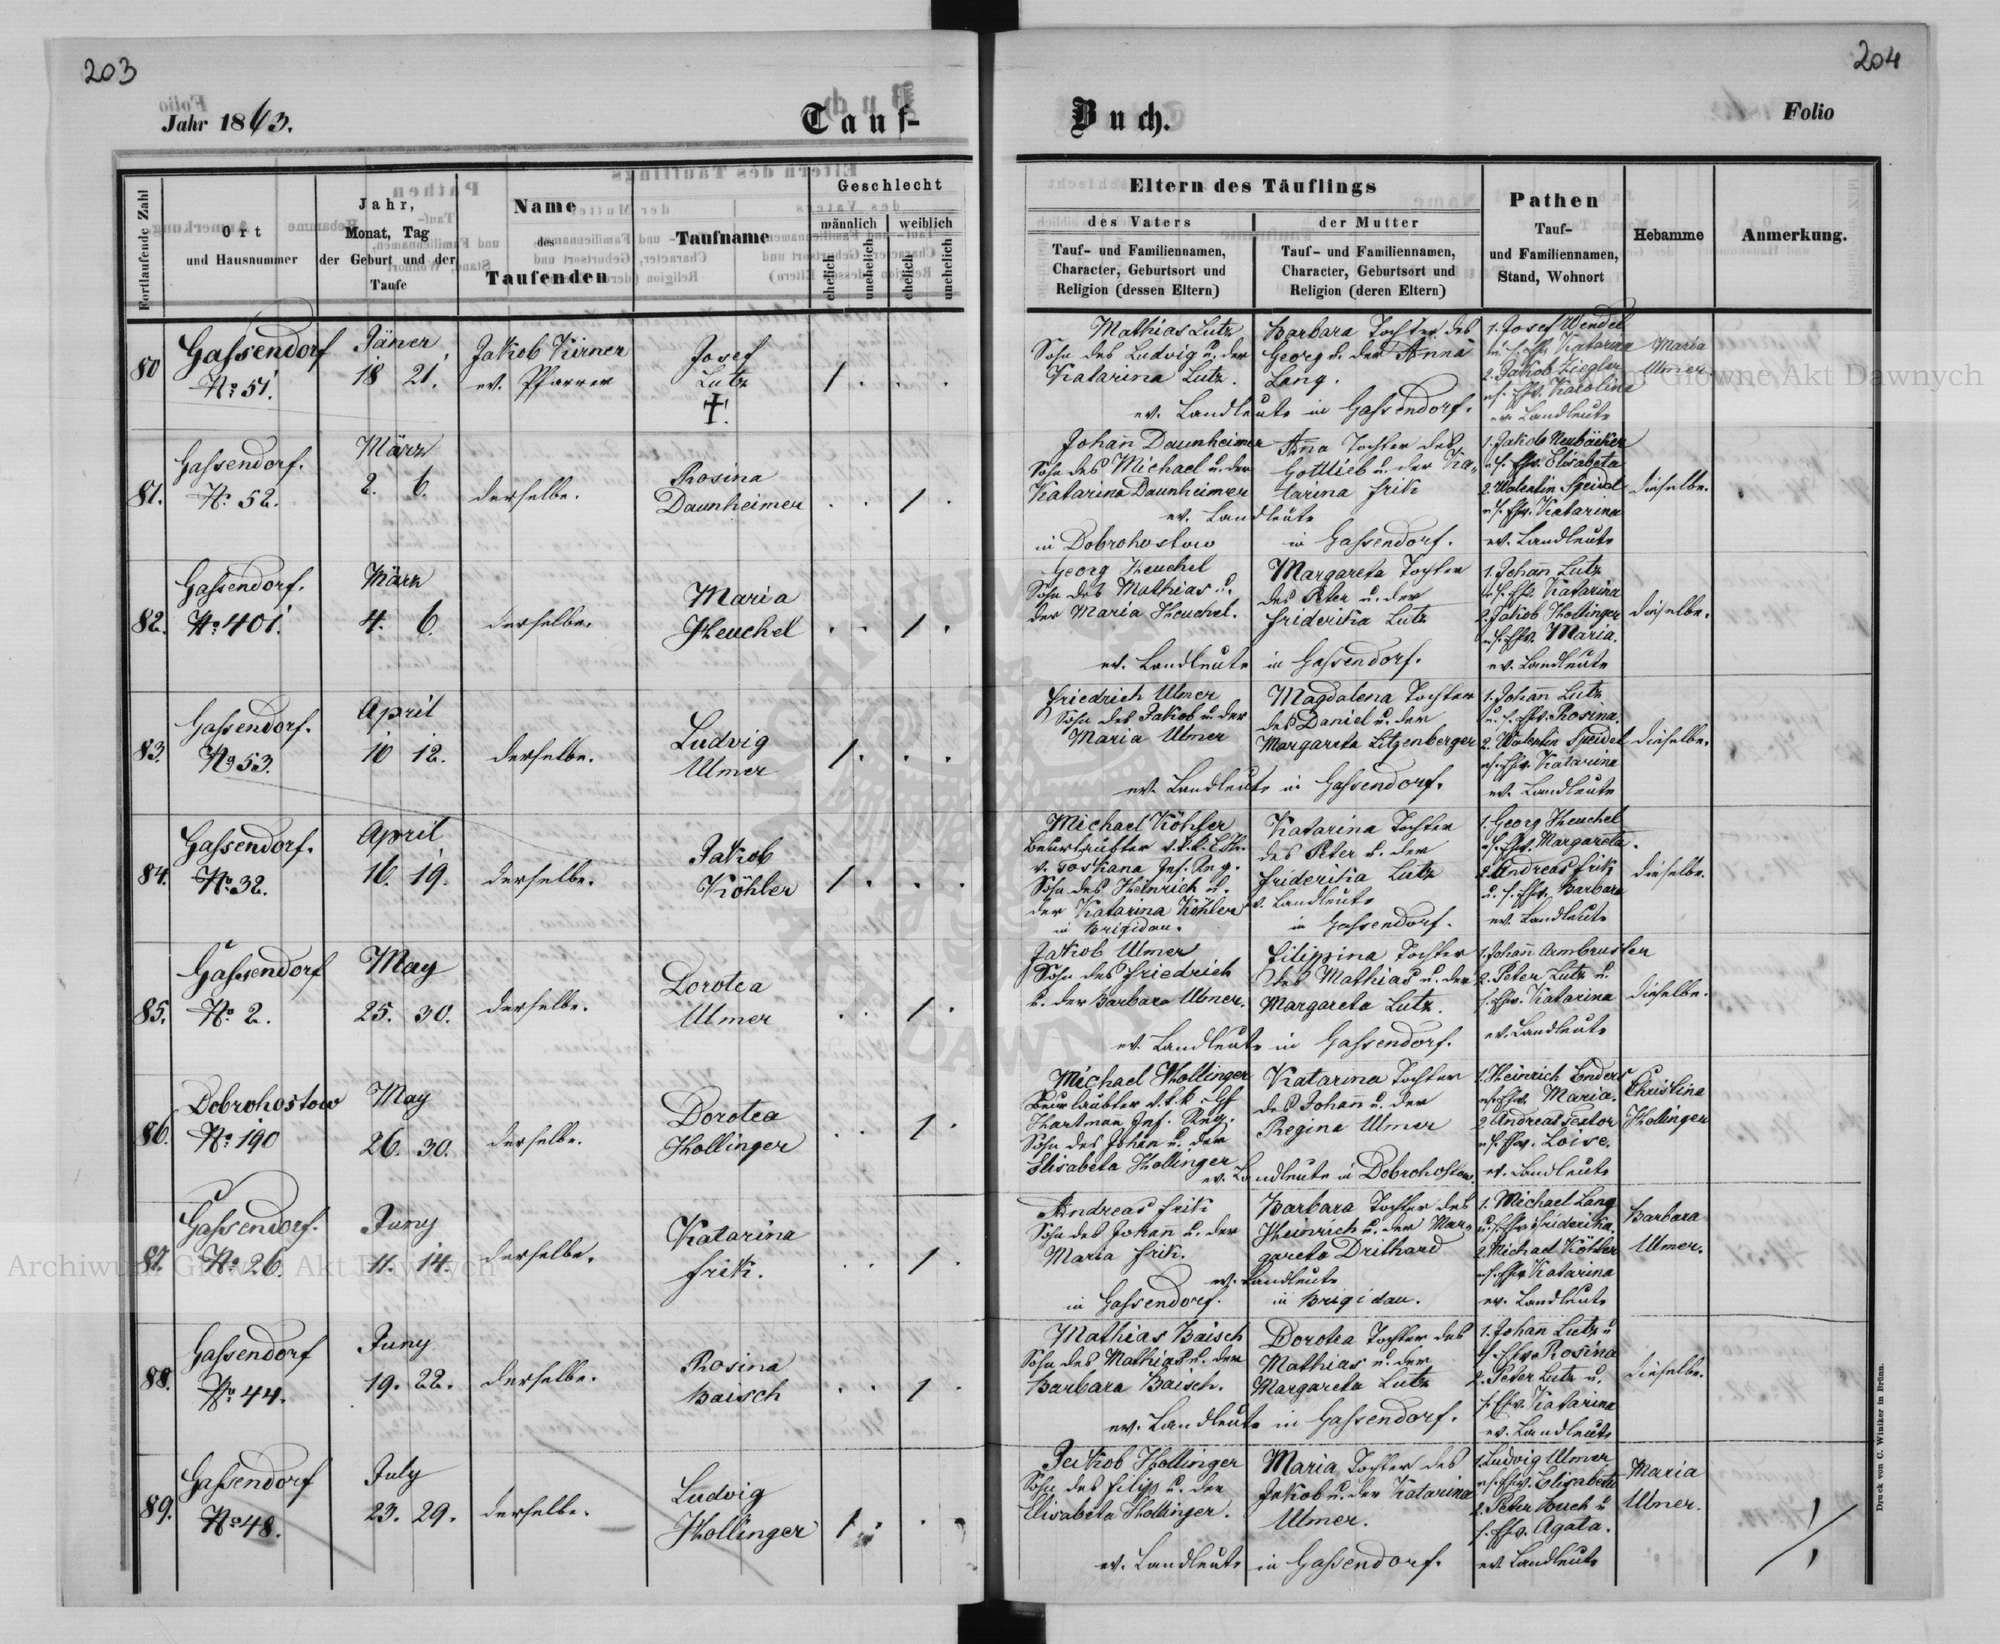 203
Jahr 1863.
Tauf-
Fortlaufende Zahl
Ort
und Hausnummer
Jahr,
Monat, Tag
der Geburt und der
Taufe
Name
des
Taufenden
Taufname
Geschlecht
männlich
weiblich
ehelich
unehelich
ehelich
unehelich
80
Gassendorf
No 51.
Jäner
18 21.
Jakob Kirner
ev. Pfarrer
Josef
Lutz
1 . . .
81.
Gassendorf.
No. 52.
März
2. 6.
derselbe.
Rosina
Daunheimer
. . 1 .
82.
Gassendorf.
No 401.
März
4. 6.
derselbe.
Maria
Heuchel
. . 1 .
83.
Gassendorf.
No 53.
April
10 12.
derselbe.
Ludvig
Ulmer
1 . . .
84.
Gassendorf.
No. 32.
April
16. 19.
derselbe.
Jakob
Köhler
1 . . .
85.
Gassendorf
No. 2.
May
25. 30.
derselbe.
Dorotea
Ulmer
. . 1 .
86.
Dobrohostow
No. 190
May
26. 30.
derselbe.
Dorotea
Hollinger
. . 1 .
87.
Gassendorf.
No. 26.
Juny
11. 14.
derselbe.
Katarina
Frik.
. . 1 .
88.
Gassendorf
No. 44.
Juny
19. 22.
derselbe.
Rosina
Baisch
. . 1 .
89.
Gassendorf
No 48.
July
23. 29.
derselbe.
Ludvig
Hollinger
1 . . .
204
Buch.
Folio
Eltern des Täuflings
des Vaters
Tauf- und Familiennamen,
Character, Geburtsort und
Religion (dessen Eltern)
der Mutter
Tauf- und Familiennamen,
Character, Geburtsort und
Religion (deren Eltern)
Pathen
Tauf-
und Familiennamen,
Stand, Wohnort
Hebamme
Anmerkung.
Mathias Lutz
Sohn des Ludvig u. der
Katarina Lutz.
Barbara Tochter des
Georg u. der Anna
Lang.
ev. Landleute in Gassendorf.
1. Josef Wendel
u. s. Ehw. Katarina
2. Jakob Ziegler
u. s. Ehw. Karolina
ev. Landleute
Maria
Ulmer
Johann Daunheimer
Sohn des Michael u. der
Katarina Daunheimer
Anna Tochter des
Gottlieb u. der Ka-
tarina Frik
ev. Landleute
in Dobrohostow
in Gassendorf.
1. Jakob Neubäcker
u. s. Ehw. Elisabeta
2. Valentin Speidel
u. s. Ehw. Katarina
ev. Landleute
dieselbe.
Georg Heuchel
Sohn des Mathias u.
der Maria Heuchel.
Margareta Tochter
des Peter u. der
Friderika Lutz
ev. Landleute in Gassendorf.
1. Johann Lutz
u. s. Ehw. Katarina
2. Jakob Hollinger
u. s. Ehw. Maria.
ev. Landleute
dieselbe.
Friedrich Ulmer
Sohn des Jakob u. der
Maria Ulmer
Magdalena Tochter
des Daniel u. der
Margareta Litzenberger
ev. Landleute in Gassendorf.
1. Johann Lutz
u. s. Ehw. Rosina.
2. Valentin Speidel
u. s. Ehw. Katarina
ev. Landleute
dieselbe.
Michael Köhler
Beurlaubter v. k. k.
v. Toskana Inf. Reg.
Sohn des Heinrich u.
der Katarina Köhler
in Brigidau.
Katarina Tochter
des Peter u. der
Friderika Lutz
ev. Landleute
in Gassendorf.
1. Georg Heuchel
u. s. Ehw. Margareta.
2. Andreas Frik
u. s. Ehw. Barbara
ev. Landleute
dieselbe.
Jakob Ulmer
Sohn des Friedrich
u. der Barbara Ulmer.
Filippina Tochter
des Mathias u. der
Margareta Lutz.
ev. Landleute in Gassendorf.
1. Johann Armbruster
2. Peter Lutz u.
s. Ehw. Katarina
ev. Landleute
dieselbe.
Michael Hollinger
Beurlaubter v. k. k.
Hartman Inf. Reg.
Sohn des Johan u. der
Elisabeta Hollinger
Katarina Tochter
des Johann u. der
Regina Ulmer
ev. Landleute in Dobrohostow.
1. Heinrich Enders
u. s. Ehw. Maria.
2. Andreas Sextor
u. s. Ehw. Loise.
ev. Landleute
Christina
Hollinger
Andreas Frik
Sohn des Johann u. der
Maria Frik.
Barbara Tochter des
Heinrich u. der Mar-
gareta Drithard
ev. Landleute
in Gassendorf.
in Brigidau.
1. Michael Lang
u. s. Ehw. Friderika
2. Michael Köhler
u. s. Ehw. Katarina
ev. Landleute
Barbara
Ulmer.
Mathias Baisch
Sohn des Mathias u. der
Barbara Baisch.
Dorotea Tochter des
Mathias u. der
Margareta Lutz
ev. Landleute in Gassendorf.
1. Johann Lutz u
s. Ehw. Rosina
2. Peter Lutz u.
s. Ehw. Katarina
ev. Landleute
dieselbe.
Jakob Hollinger
Sohn des Filipp u. der
Elisabeta Hollinger.
Maria Tochter des
Jakob u. der Katarina
Ulmer.
ev. Landleute in Gassendorf.
1. Ludvig Ulmer
u. s. Ehw. Elisabeta
2. Peter Buch u
s. Ehw. Agata.
ev. Landleute
Maria
Ulmer.
Druck von C. Winiker in Brünn.
Archiwum Główne Akt Dawnych